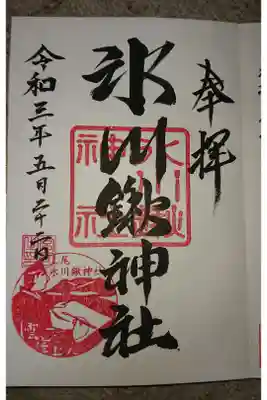 奉拝
氷川鍬神社
氷川鍬神社
令和三年五月
上尾
氷川鍬神社